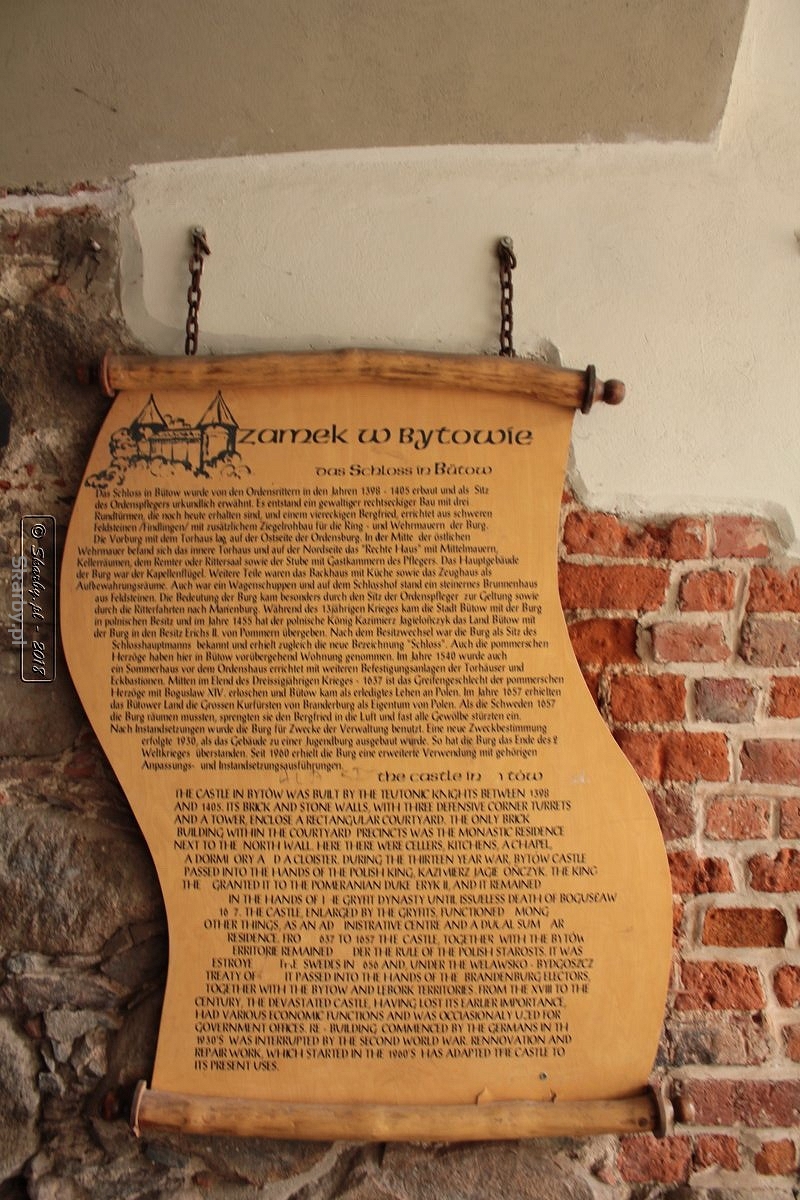 zamek w Bytowie
das Schloss in Bütow
Das Schloss in Bütow wurde von den Ordensrittern in den Jahren 1398 - 1405 erbaut und als Sitz
des Ordenspflegers urkundlich erwähnt. Es entstand ein gewaltiger rechtseckiger Bau mit drei
Rundtürmen, die noch heute erhalten sind, und einem viereckigen Bergfried, errichtet aus schweren
Feldsteinen /Findlingen/ mit zusätzlichem Ziegelrohbau für die Ring - und Wehrmauern der Burg.
Die Vorburg mit dem Torhaus lag auf der Ostseite der Ordensburg. In der Mitte der östlichen
Wehrmauer befand sich das innere Torhaus und auf der Nordseite das "Rechte Haus" mit Mittelmauern,
Kellerräumen, dem Remter oder Rittersaal sowie der Stube mit Gastkammern des Pflegers. Das Hauptgebäude
der Burg war der Kapellenflügel. Weitere Teile waren das Backhaus mit Küche sowie das Zeughaus als
Aufbewahrungsräume. Auch war ein Wagenschuppen und auf dem Schlosshof stand ein steinernes Brunnenhaus
aus Feldsteinen. Die Bedeutung der Burg kam besonders durch den Sitz der Ordenspfleger zur Geltung sowie
durch die Ritterfahrten nach Marienburg. Während des 13jährigen Krieges kam die Stadt Bütow mit der Burg
in polnischen Besitz und im Jahre 1455 hat der polnische König Kazimierz Jagielończyk das Land Bütow mit
der Burg in den Besitz Erichs II. von Pommern übergeben. Nach dem Besitzwechsel war die Burg als Sitz des
Schlosshauptmanns bekannt und erhielt zugleich die neue Bezeichnung "Schloss". Auch die pommerschen
Herzöge haben hier in Bütow vorübergehend Wohnung genommen. Im Jahre 1540 wurde auch
ein Sommerhaus vor dem Ordenshaus errichtet mit weiteren Befestigungsanlagen der Torhäuser und
Eckbastionen. Mitten im Elend des Dreissigjährigen Krieges - 1637 ist das Greifengeschlecht der pommerschen
Herzöge mit Boguslaw XIV. erloschen und Bütow kam als erledigtes Lehen an Polen. Im Jahre 1657 erhielten
das Bütower Land die Grossen Kurfürsten von Branderburg als Eigentum von Polen. Als die Schweden 1657
die Burg räumen mussten, sprengten sie den Bergfried in die Luft und fast alle Gewölbe stürzten ein.
Nach Instandsetzungen wurde die Burg für Zwecke der Verwaltung benutzt. Eine neue Zweckbestimmung
erfolgte 1930, als das Gebäude zu einer Jugendburg ausgebaut würde. So hat die Burg das Ende des 2
Weltkrieges überstanden. Seit 1960 erhielt die Burg eine erweiterte Verwendung mit gehörigen
Anpassungs- und Instandsetzungsausführungen.
the castle in tów
THE CASTLE IN BYTÓW WAS BUILT BY THE TEUTONIC KNIGHTS BETWEEN 1398
AND 1405. ITS BRICK AND STONE WALLS, WITH THREE DEFENSIVE CORNER TURRETS
AND A TOWER, ENCLOSE A RECTANGULAR COURTYARD. THE ONLY BRICK
BUILDING WITHIN THE COURTYARD PRECINCTS WAS THE MONASTIC RESIDENCE
NEXT TO THE NORTH WALL. HERE THERE WERE CELLERS, KITCHENS, A CHAPEL,
A DORMI ORY A D A CLOISTER. DURING THE THIRTEEN YEAR WAR, BYTÓW CASTLE
PASSED INTO THE HANDS OF THE POLISH KING, KAZIMIERZ JAGIE OŃCZYK. THE KING
THE GRANTED IT TO THE POMERANIAN DUKE ERYK II, AND IT REMAINED
IN THE HANDS OF HE GRYFIT DYNASTY UNTIL ISSUELESS DEATH OF BOGUSŁAW
16 7. THE CASTLE, ENLARGED BY THE GRYFITS, FUNCTIONED MONG
OTHER THINGS, AS AN AD NISTRATIVE CENTRE AND A DUCAL SUM AR
RESIDENCE. FRO 637 TO 1657 THE CASTLE, TOGETHER WITH THE BYTÓW
ERRITORIE REMAINED DER THE RULE OF THE POLISH STAROSTS. IT WAS
ESTROYE THE SWEDES IN 656 AND, UNDER THE WELAWSKO - BYDGOSZCZ
TREATY OF IT PASSED INTO THE HANDS OF THE BRANDENBURG ELECTORS,
TOGETHER WITH THE BYTOW AND LĘBORK TERRITORIES. FROM THE XVIII TO THE
CENTURY, THE DEVASTATED CASTLE, HAVING LOST ITS EARLIER IMPORTANCE,
HAD VARIOUS ECONOMIC FUNCTIONS AND WAS OCCASIONALY USED FOR
GOVERNMENT OFFICES. RE - BUILDING COMMENCED BY THE GERMANS IN TH
1930'S WAS INTERRUPTED BY THE SECOND WORLD WAR. RENNOVATION AND
REPAIR WORK, WHICH STARTED IN THE 1960'S HAS ADAPTED THE CASTLE TO
ITS PRESENT USES.
© Skarby.pl - 2018
Skarby.pl